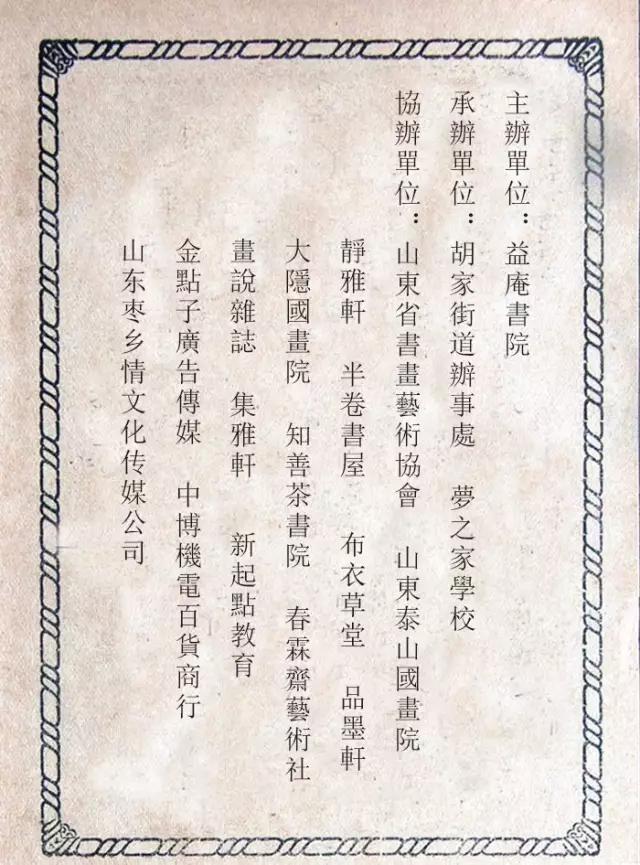 主辦單位：益庵書院
承辦單位：胡家街道辦事處 夢之家學校
協辦單位：山東省書畫藝術協會 山東泰山國畫院
靜雅軒 半卷書屋 布衣草堂 品墨軒
大隱國畫院 知善茶書院 春霖齋藝術社
畫說雜誌 集雅軒 新起點教育
金點子廣告傳媒 中博機電百貨商行
山东枣乡情文化传媒公司